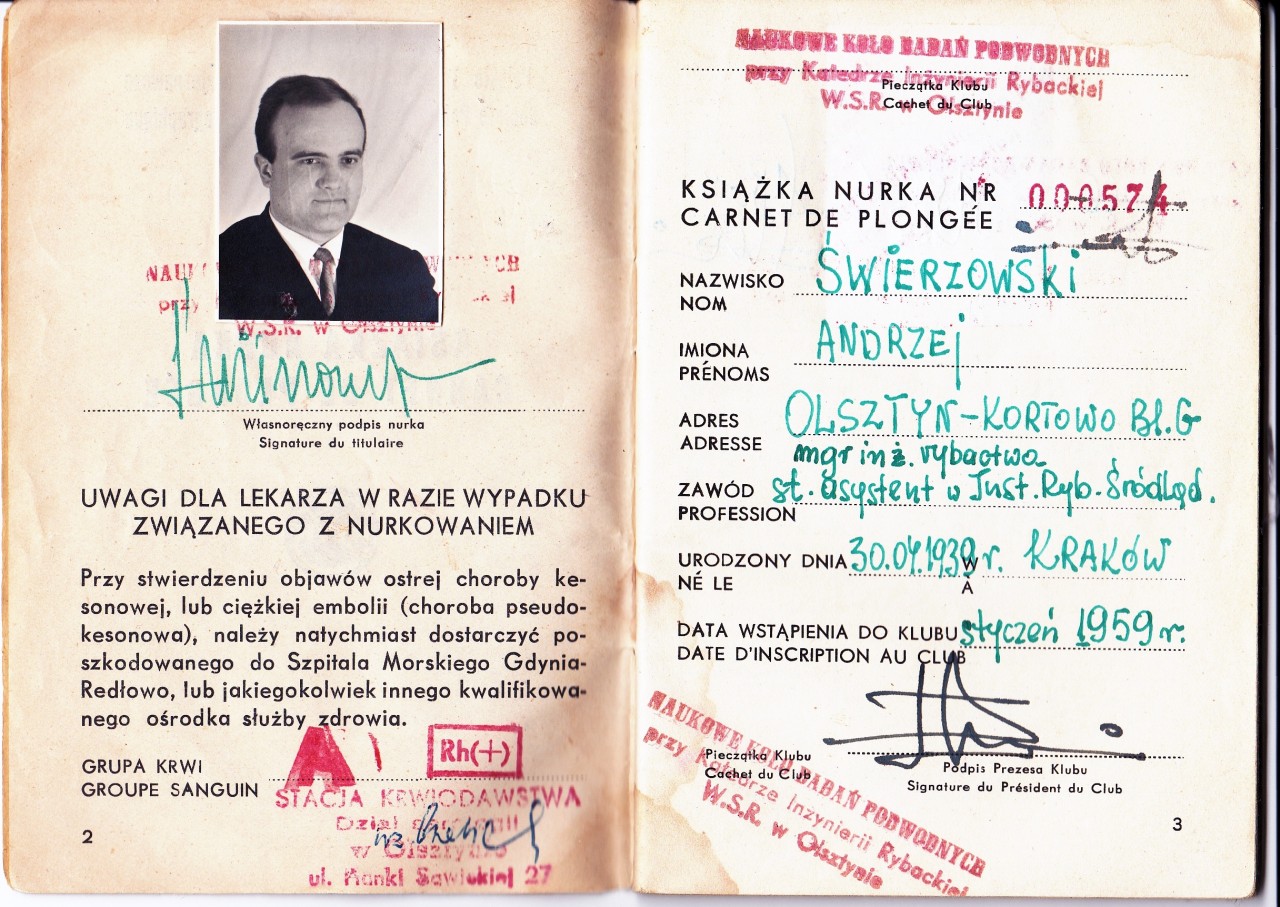 NAUKOWE KOŁO BADAŃ PODWODNYCH
przy Katedrze Inżynierii Rybackiej
W.S.R. w Olsztynie
Własnoręczny podpis nurka
Signature du titulaire
UWAGI DLA LEKARZA W RAZIE WYPADKU
ZWIĄZANEGO Z NURKOWANIEM
Przy stwierdzeniu objawów ostrej choroby ke-
sonowej, lub ciężkiej embolii (choroba pseudo-
kesonowa), należy natychmiast dostarczyć po-
szkodowanego do Szpitala Morskiego Gdynia-
Redłowo, lub jakiegokolwiek innego kwalifikowa-
nego ośrodka służby zdrowia.
A Rh(+)
GRUPA KRWI
GROUPE SANGUIN
STACJA KRWIODAWSTWA
Dział
w Olsztynie
ul. Hanki Sawickiej 27
2
NAUKOWE KOŁO BADAŃ PODWODNYCH
przy Katedrze Inżynierii Rybackiej
W.S.R. w Olsztynie
Pieczątka Klubu
Cachet du Club
KSIĄŻKA NURKA NR 000574
CARNET DE PLONGÉE
NAZWISKO ŚWIERZOWSKI
NOM
IMIONA ANDRZEJ
PRÉNOMS
ADRES OLSZTYN-KORTOWO Bl.G
ADRESSE
mgr inż. rybactwa
ZAWÓD st. asystent w Inst. Ryb. Śródląd.
PROFESSION
URODZONY DNIA 30.04.1939 r. W KRAKÓW
NÉ LE À
DATA WSTĄPIENIA DO KLUBU styczeń 1959 r.
DATE D'INSCRIPTION AU CLUB
NAUKOWE KOŁO BADAŃ PODWODNYCH
przy Katedrze Inżynierii Rybackiej
W.S.R. w Olsztynie
Pieczątka Klubu
Cachet du Club
Podpis Prezesa Klubu
Signature du Président du Club
3